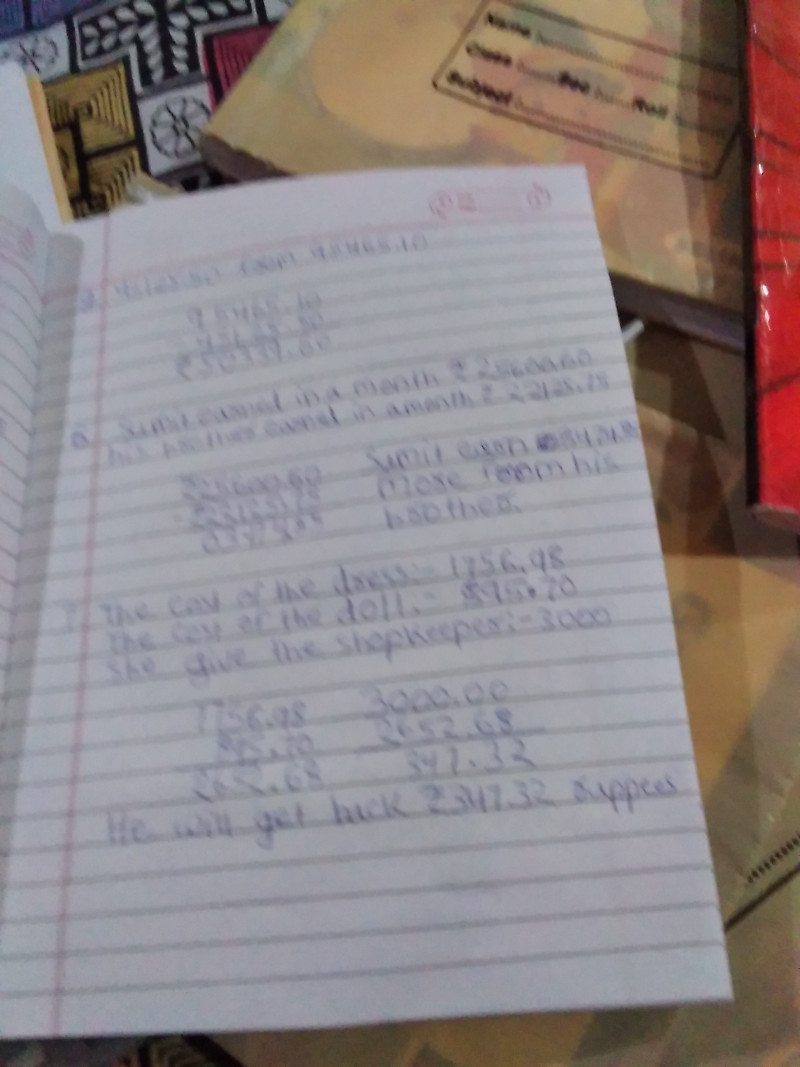 Name
Class Sec Roll
Subject
from 95465.10
95465.10
Sumit earned in a month ₹ 25600.60
his brother earned in a month ₹ 22125.75
₹25600.60 Sumit earn
more from his
brother.
7. The cost of the dress:- 1756.98
The cost of the doll:- 895.70
She give the shopkeeper:- 3000
1756.98 3000.00
895.70 2652.68
2652.68 347.32
He will get back ₹347.32 ruppees